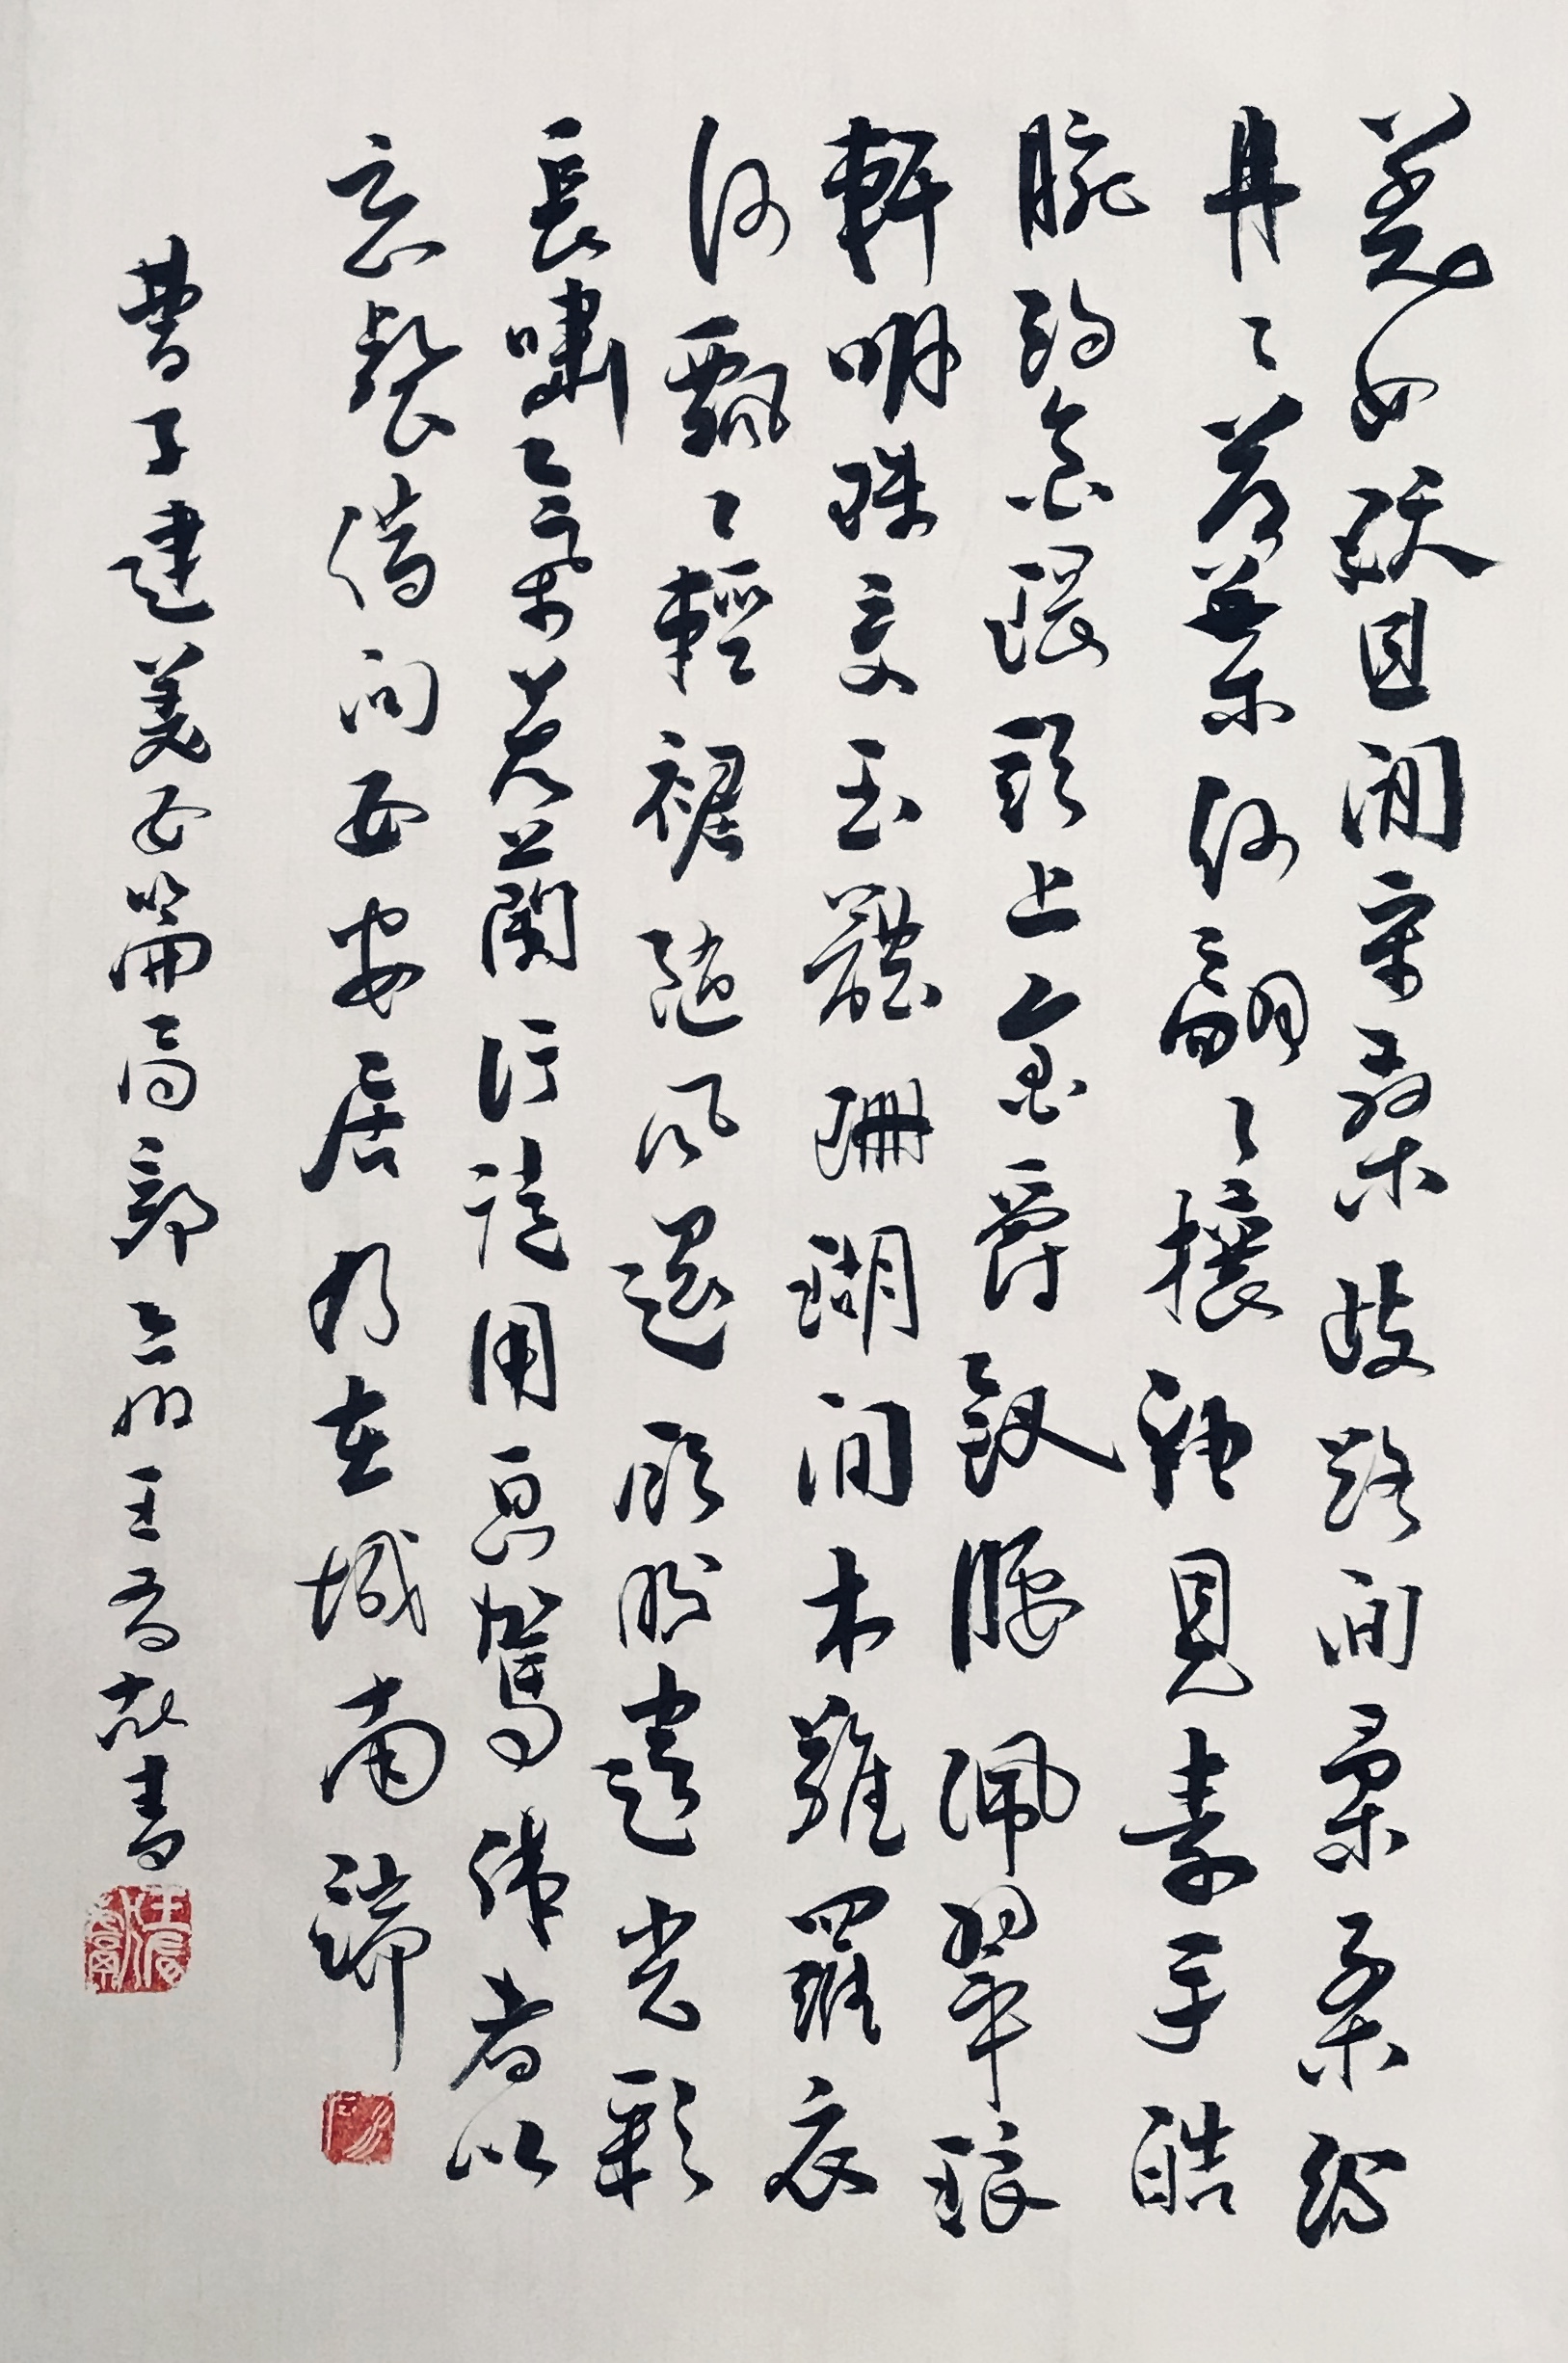 美女妖且閑采桑歧路間柔条紛
冉〻落葉何翩〻攘袖見素手皓
腕約金環頭上金爵釵腰佩翠琅
軒明珠交玉體珊瑚間木難羅衣
何飄〻輕裾隨風還顧盼遺光彩
長嘯氣若蘭行徒用息駕休者以
忘餐借問女安居乃在城南端
曹子建美女篇局部 王書